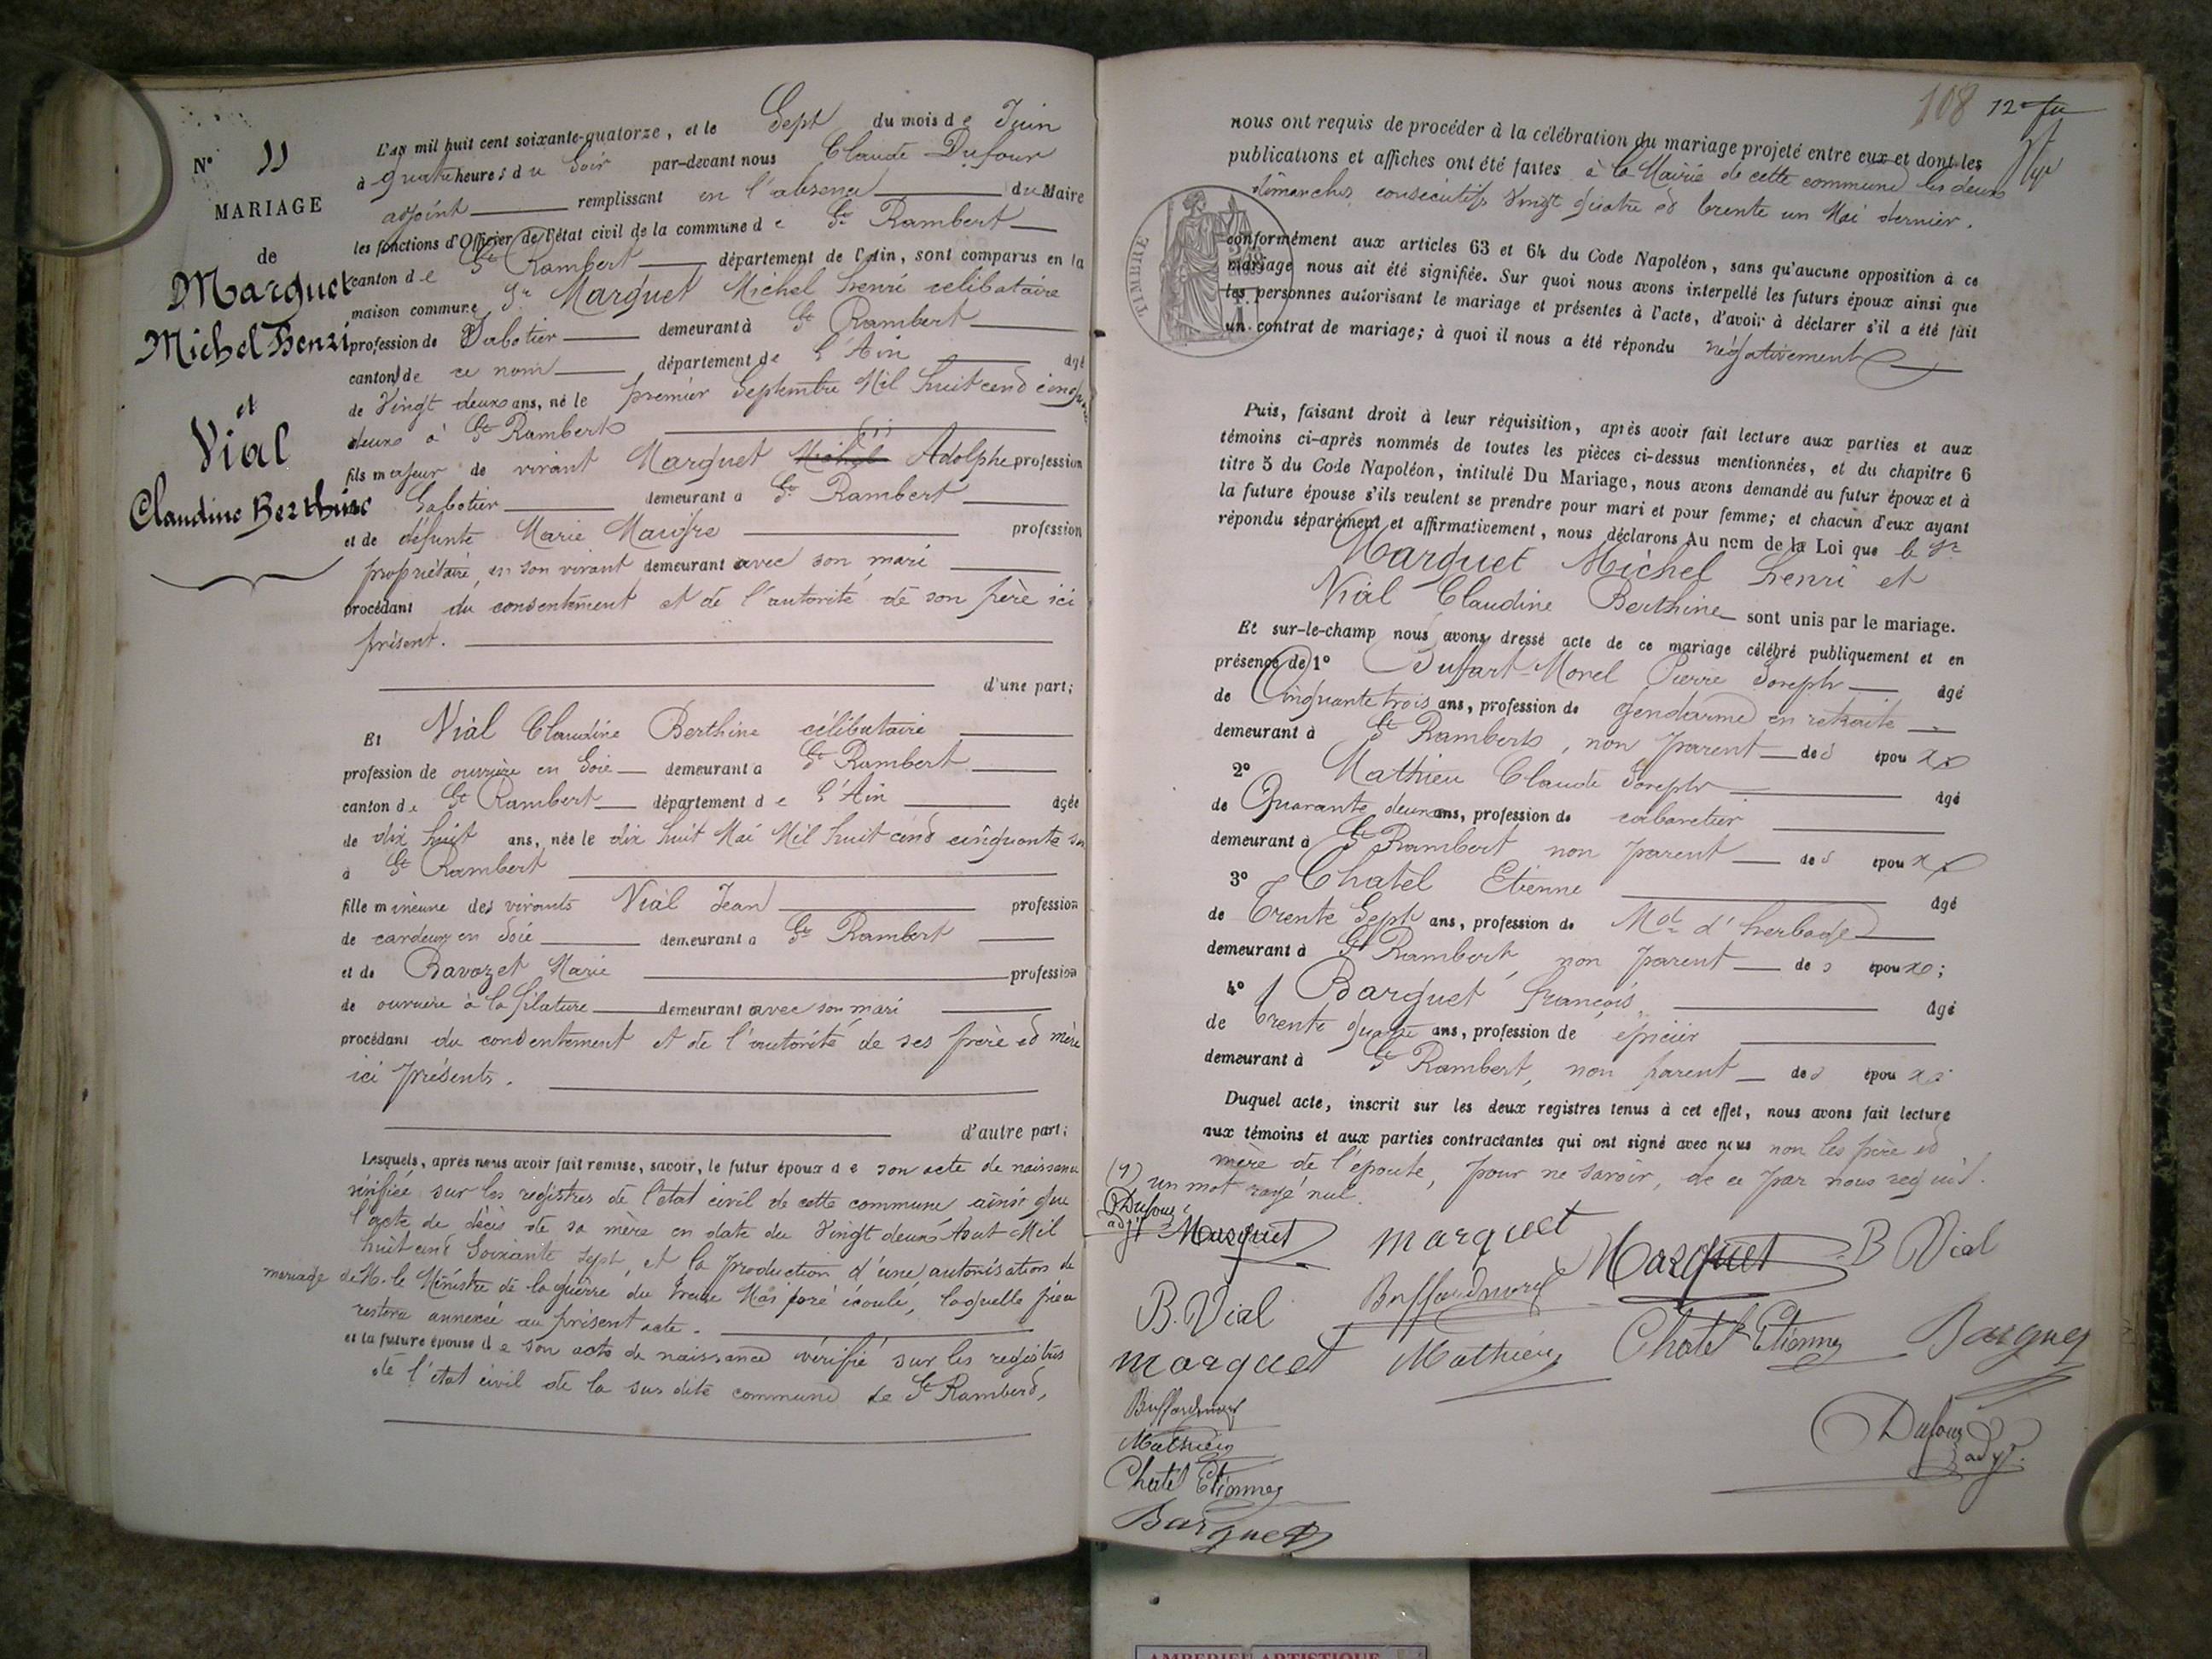 N° 11
MARIAGE
de
Marguet
Michel Henri
et
Vial
Claudine Berthine
L'an mil huit cent soixante-quatorze, et le Sept du mois de Juin
à quatre heures du Soir par-devant nous Claude Dufour
adjoint remplissant en l'absence du Maire
les fonctions d'Officier de l'état civil de la commune de St Rambert
canton de St Rambert département de l'Ain, sont comparus en la
maison commune Sr Marguet Michel henri célibataire
profession de Sabotier demeurant à St Rambert
canton de ce nom département de l'Ain âgé
de Vingt deux ans, né le premier Septembre Mil huit cent cinquante
deux à St Rambert
fils majeur de vivant Marguet Michel (1) Adolphe profession
Sabotier demeurant à St Rambert
et de défunte Marie profession
propriétaire, en son vivant demeurant avec son mari
procédant du consentement et de l'autorité de son père ici
présent.
d'une part;
Et Vial Claudine Berthine célibataire
profession de ouvrière en Soie demeurant à St Rambert
canton de St Rambert département de l'Ain âgée
de dix huit ans, née le dix huit Mai Mil huit cent cinquante six
à St Rambert
fille mineure des vivants Vial Jean profession
de cardeur en Soie demeurant à St Rambert
et de Ravozet Marie profession
de ouvrière à la filature demeurant avec son mari
procédant du consentement et de l'autorité de ses père et mère
ici présents.
d'autre part;
Lesquels, après nous avoir fait remise, savoir, le futur époux de son acte de naissance
vérifiée sur les registres de l'état civil de cette commune ainsi que
l'acte de décès de sa mère en date du Vingt deux Aout Mil
huit cent Soixante sept, et la production d'une autorisation de
mariage de M. le Ministre de la guerre du treize Mai écoulé, laquelle pièce
restera annexée au présent acte.
et la future épouse de son acte de naissance vérifié sur les registres
de l'état civil de la sus dite commune de St Rambert,
108 12e fet
nous ont requis de procéder à la célébration du mariage projeté entre eux et dont les
publications et affiches ont été faites à la Mairie de cette commune les deux
dimanches consécutifs Vingt quatre et trente un Mai dernier.
TIMBRE
conformément aux articles 63 et 64 du Code Napoléon, sans qu'aucune opposition à ce
mariage nous ait été signifiée. Sur quoi nous avons interpellé les futurs époux ainsi que
les personnes autorisant le mariage et présentes à l'acte, d'avoir à déclarer s'il a été fait
un contrat de mariage; à quoi il nous a été répondu négativement
Puis, faisant droit à leur réquisition, après avoir fait lecture aux parties et aux
témoins ci-après nommés de toutes les pièces ci-dessus mentionnées, et du chapitre 6
titre 5 du Code Napoléon, intitulé Du Mariage, nous avons demandé au futur époux et à
la future épouse s'ils veulent se prendre pour mari et pour femme; et chacun d'eux ayant
répondu séparément et affirmativement, nous déclarons Au nom de la Loi que le Sr
Marguet Michel henri et
Vial Claudine Berthine sont unis par le mariage.
Et sur-le-champ nous avons dressé acte de ce mariage célébré publiquement et en
présence de 1° Buffart-Morel Pierre Joseph âgé
de Cinquante trois ans, profession de gendarme en retraite
demeurant à St Rambert, non parent des époux
2° Mathieu Claude Joseph âgé
de Quarante deux ans, profession de cabaretier
demeurant à St Rambert non parent des époux
3° Chatel Etienne âgé
de Trente Sept ans, profession de Md d'herbage
demeurant à St Rambert, non parent des époux;
4° Barguet françois âgé
de trente quatre ans, profession de épicier
demeurant à St Rambert, non parent des époux
Duquel acte, inscrit sur les deux registres tenus à cet effet, nous avons fait lecture
aux témoins et aux parties contractantes qui ont signé avec nous non les père et
mère de l'épouse, pour ne savoir, de ce par nous requis.
(1) un mot rayé nul.
Dufour
adjt Marguet marguet Marguet B Vial
B. Vial Buffardmorel
marguet Mathieu Chatel Etienne Barguet
Buffardmorel
Mathieu
Chatel Etienne
Barguet
Dufour
adjt
AMBERIEU ARTISTIQUE